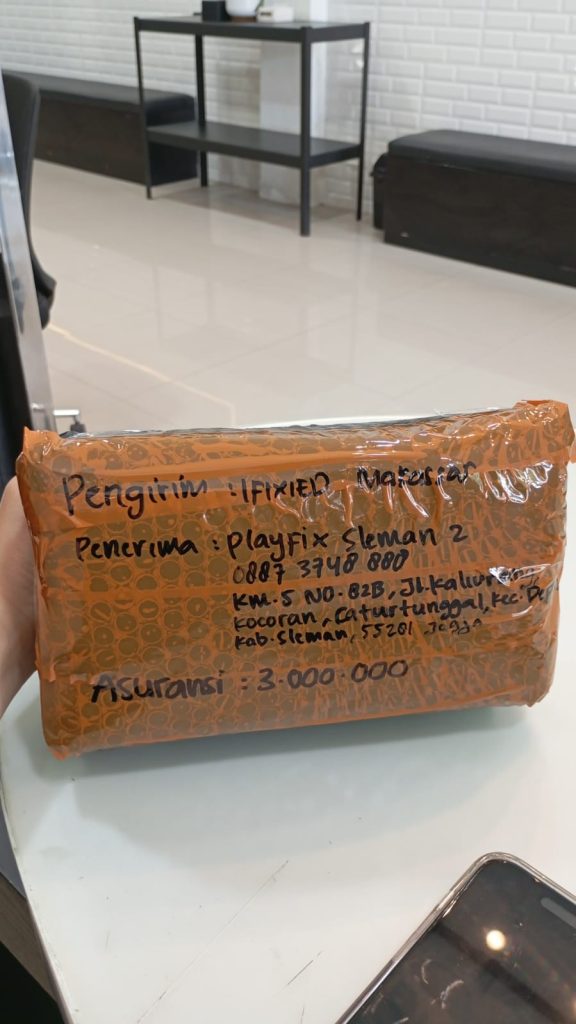 Pengirim : IFIXIED Makassar
Penerima : Playfix Sleman 2
0887 3748 880
KM. 5 NO. 82B, Jl. Kaliurang
Kocoran, Caturtunggal, Kec. Dep
Kab. Sleman, 55281 Jogja
Asuransi : 3.000.000